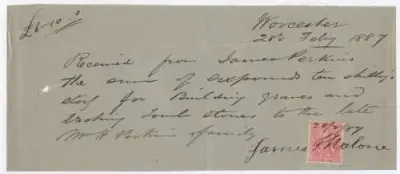 £6-10-0
Worcester
28th Feby 1887
Received from James Perkins
the sum of sixpounds ten shillgs
sterg for Building graves and
Erecting Tomb stones to the late
Mr H Perkins & family
28/2/87
James Malone